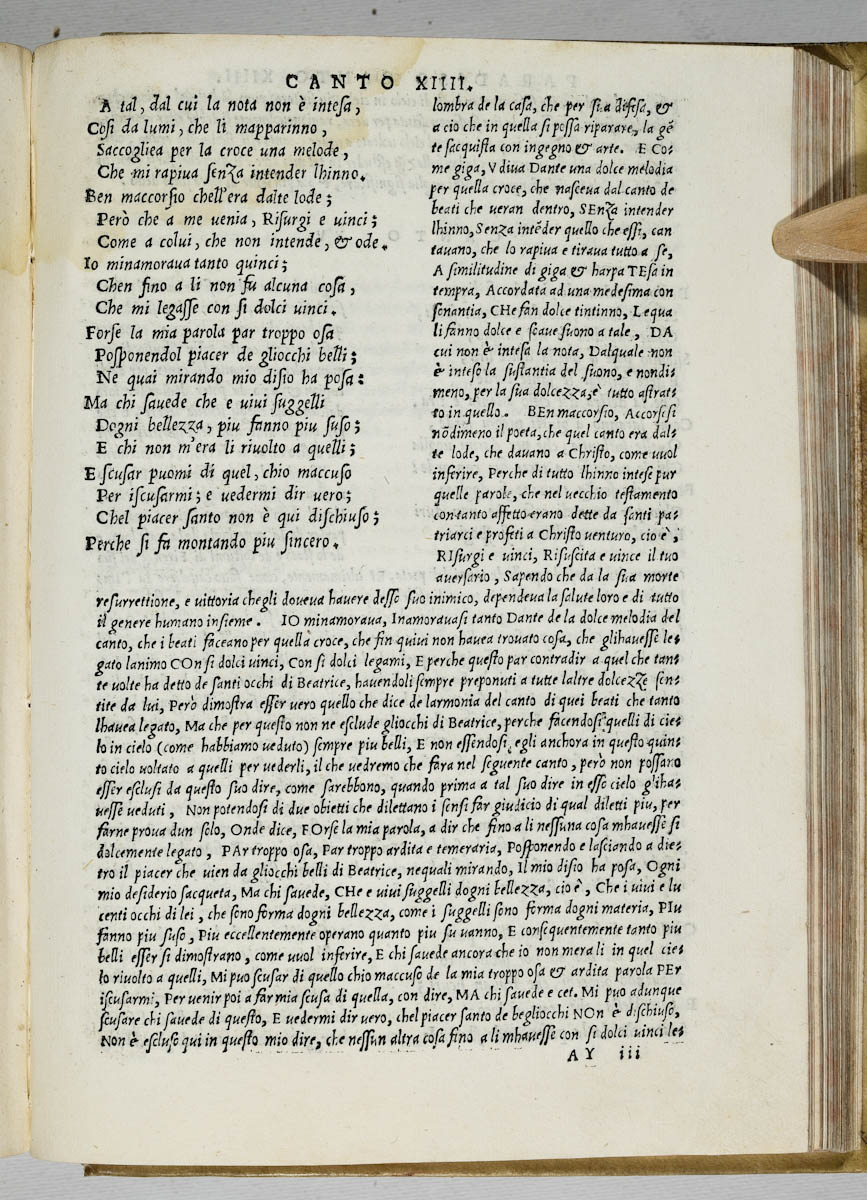 CANTO XIIII.
A tal, dal cui la nota non è intesa,
Cosi da lumi, che li mapparinno,
Saccogliea per la croce una melode,
Che mi rapiua senza intender lhinno.
Ben maccorsio chell'era dalte lode;
Però che a me uenia, Risurgi e uinci;
Come a colui, che non intende, & ode.
Io minamoraua tanto quinci;
Chen fino a li non fu alcuna cosa,
Che mi legasse con si dolci uinci.
Forse la mia parola par troppo osa
Posponendol piacer de gliocchi belli;
Ne quai mirando mio disio ha posa:
Ma chi sauede che e uiui suggelli
Dogni bellezza, piu fanno piu suso;
E chi non m'era li riuolto a quelli;
E scusar puomi di quel, chio maccuso
Per iscusarmi; e uedermi dir uero;
Chel piacer santo non è qui dischiuso;
Perche si fa montando piu sincero.
lombra de la casa, che per sua difesa, &
a cio che in quella si possa riparare, la gẽ
te sacquista con ingegno & arte. E Co=
me giga, Vdiua Dante una dolce melodia
per quella croce, che nasceua dal canto de
beati che ueran dentro, SEnza intender
lhinno, Senza intẽder quello che essi, can
tauano, che lo rapiua e tiraua tutto a se,
A similitudine di giga & harpa TEsa in
tempra, Accordata ad una medesima con
sonantia, CHe fan dolce tintinno, Lequa
li fanno dolce e soaue suono a tale, DA
cui non è intesa la nota, Dalquale non
è inteso la sustantia del suono, e nondi=
meno, per la sua dolcezza, è tutto astrat=
to in quello. BEn maccorsio, Accorsesi
nõdimeno il poeta, che quel canto era dal=
te lode, che dauano a Christo, come uuol
inferire, Perche di tutto lhinno intese pur
quelle parole, che nel uecchio testamento
con tanto affetto erano dette da santi pa=
triarci e profeti a Christo uenturo, cio è,
RIsurgi e uinci, Risuscita e uince il tuo
auersario, Sapendo che da la sua morte
resurrettione, e uittoria chegli doueua hauere desso suo inimico, dependeua la salute loro e di tutto
il genere humano insieme. IO minamoraua, Inamorauasi tanto Dante de la dolce melodia del
canto, che i beati faceano per quella croce, che fin quiui non hauea trouato cosa, che glihauesse le=
gato lanimo COn si dolci uinci, Con si dolci legami, E perche questo par contradir a quel che tan=
te uolte ha detto de santi occhi di Beatrice, hauendoli sempre preponuti a tutte laltre dolcezze sen=
tite da lui, Però dimostra esser uero quello che dice de larmonia del canto di quei beati che tanto
lhauea legato, Ma che per questo non ne esclude gliocchi di Beatrice, perche facendosi quelli di cie=
lo in cielo (come habbiamo ueduto) sempre piu belli, E non essendosi egli anchora in questo quin=
to cielo uoltato a quelli per uederli, il che uedremo che fara nel seguente canto, però non possano
esser esclusi da questo suo dire, come sarebbono, quando prima a tal suo dire in esso cielo gliha=
uesse ueduti, Non potendosi di due obietti che dilettano i sensi far giudicio di qual diletti piu, per
farne proua dun solo, Onde dice, FOrse la mia parola, a dir che fino a li nessuna cosa mhauesse si
dolcemente legato, PAr troppo osa, Par troppo ardita e temeraria, Posponendo e lasciando a die=
tro il piacer che uien da gliocchi belli di Beatrice, nequali mirando, Il mio disio ha posa, Ogni
mio desiderio sacqueta, Ma chi sauede, CHe e uiui suggelli dogni bellezza, cio è, Che i uiui e lu
centi occhi di lei, che sono forma dogni bellezza, come i suggelli sono forma dogni materia, PIu
fanno piu suso, Piu eccellentemente operano quanto piu su uanno, E consequentemente tanto piu
belli esser si dimostrano, come uuol inferire, E chi sauede ancora che io non mera li in quel cie=
lo riuolto a quelli, Mi puo scusar di quello chio maccuso de la mia troppo osa & ardita parola PEr
iscusarmi, Per uenir poi a far mia scusa di quella, con dire, MA chi sauede e cet. Mi puo adunque
scusare chi sauede di questo, E uedermi dir uero, chel piacer santo de begliocchi NOn è dischiuso,
Non è escluso qui in questo mio dire, che nessun altra cosa fino a li mhauesse con si dolci uinci le=
AY iii